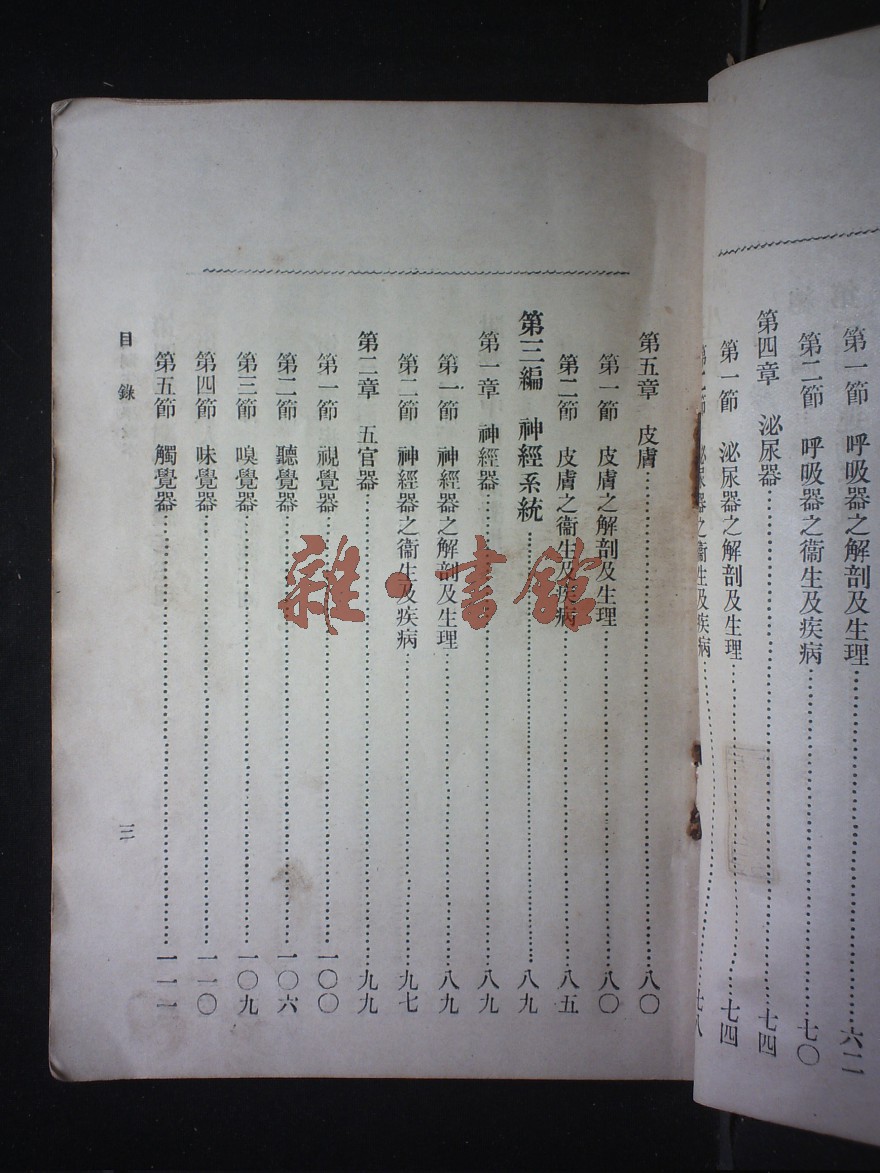 第一節 呼吸器之解剖及生理……六二
第二節 呼吸器之衞生及疾病……七〇
第四章 泌尿器……七四
第一節 泌尿器之解剖及生理……七四
第二節 泌尿器之衞生及疾病……七八
第五章 皮膚……八〇
第一節 皮膚之解剖及生理……八〇
第二節 皮膚之衞生及疾病……八五
第三編 神經系統……八九
第一章 神經器……八九
第一節 神經器之解剖及生理……八九
第二節 神經器之衞生及疾病……九七
第二章 五官器……九九
第一節 視覺器……一〇〇
第二節 聽覺器……一〇六
第三節 嗅覺器……一〇九
第四節 味覺器……一一〇
第五節 觸覺器……一一一
目錄
三
雜·書館